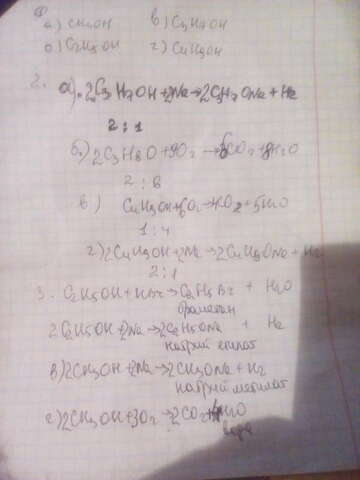 а) CH3OH в) C3H7OH
б) C2H5OH г) C4H9OH
2. а). 2C3H7OH+2Na→2C3H7ONa+H2
2:1
б.) 2C3H8O+9O2→6CO2+8H2O
2:6
в) C4H9OH+6O2→4CO2+5H2O
1:4
г) 2C4H9OH+2Na→2C4H9ONa+H2
2:1
3. C2H5OH+HBr→C2H5Br + H2O
бромэтан
2C2H5OH+2Na→2C2H5ONa + H2
натрий етилат
в) 2CH3OH+2Na→2CH3ONa+H2
натрий метилат
г) 2CH3OH+3O2→2CO2+4H2O
вода